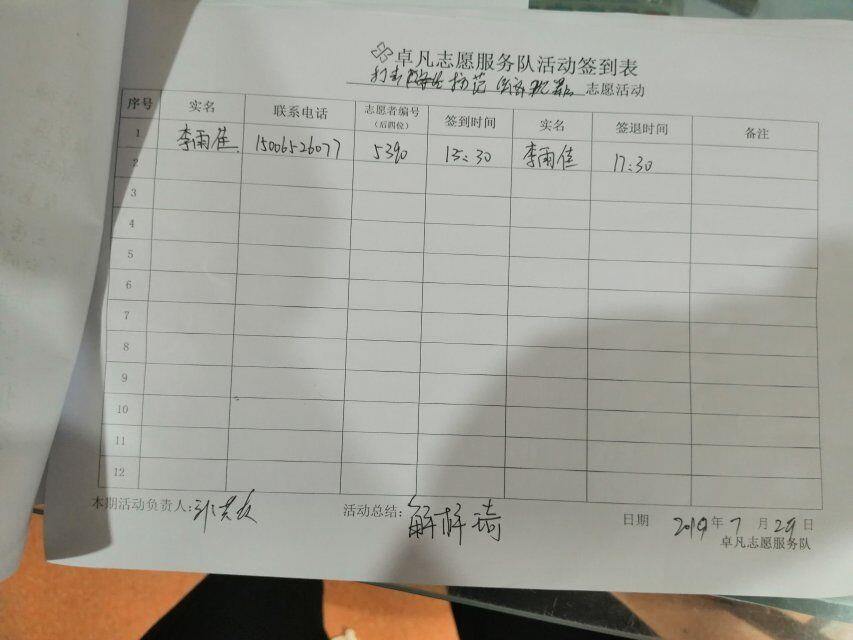 卓凡志愿服务队活动签到表
打击 防范 志愿活动
序号 实名 联系电话 志愿者编号（后四位） 签到时间 实名 签退时间 备注
1 李雨佳 15006526077 5390 15:30 李雨佳 17:30
2
3
4
5
6
7
8
9
10
11
12
本期活动负责人: 活动总结: 解 琦 日期 2019年7月29日
卓凡志愿服务队